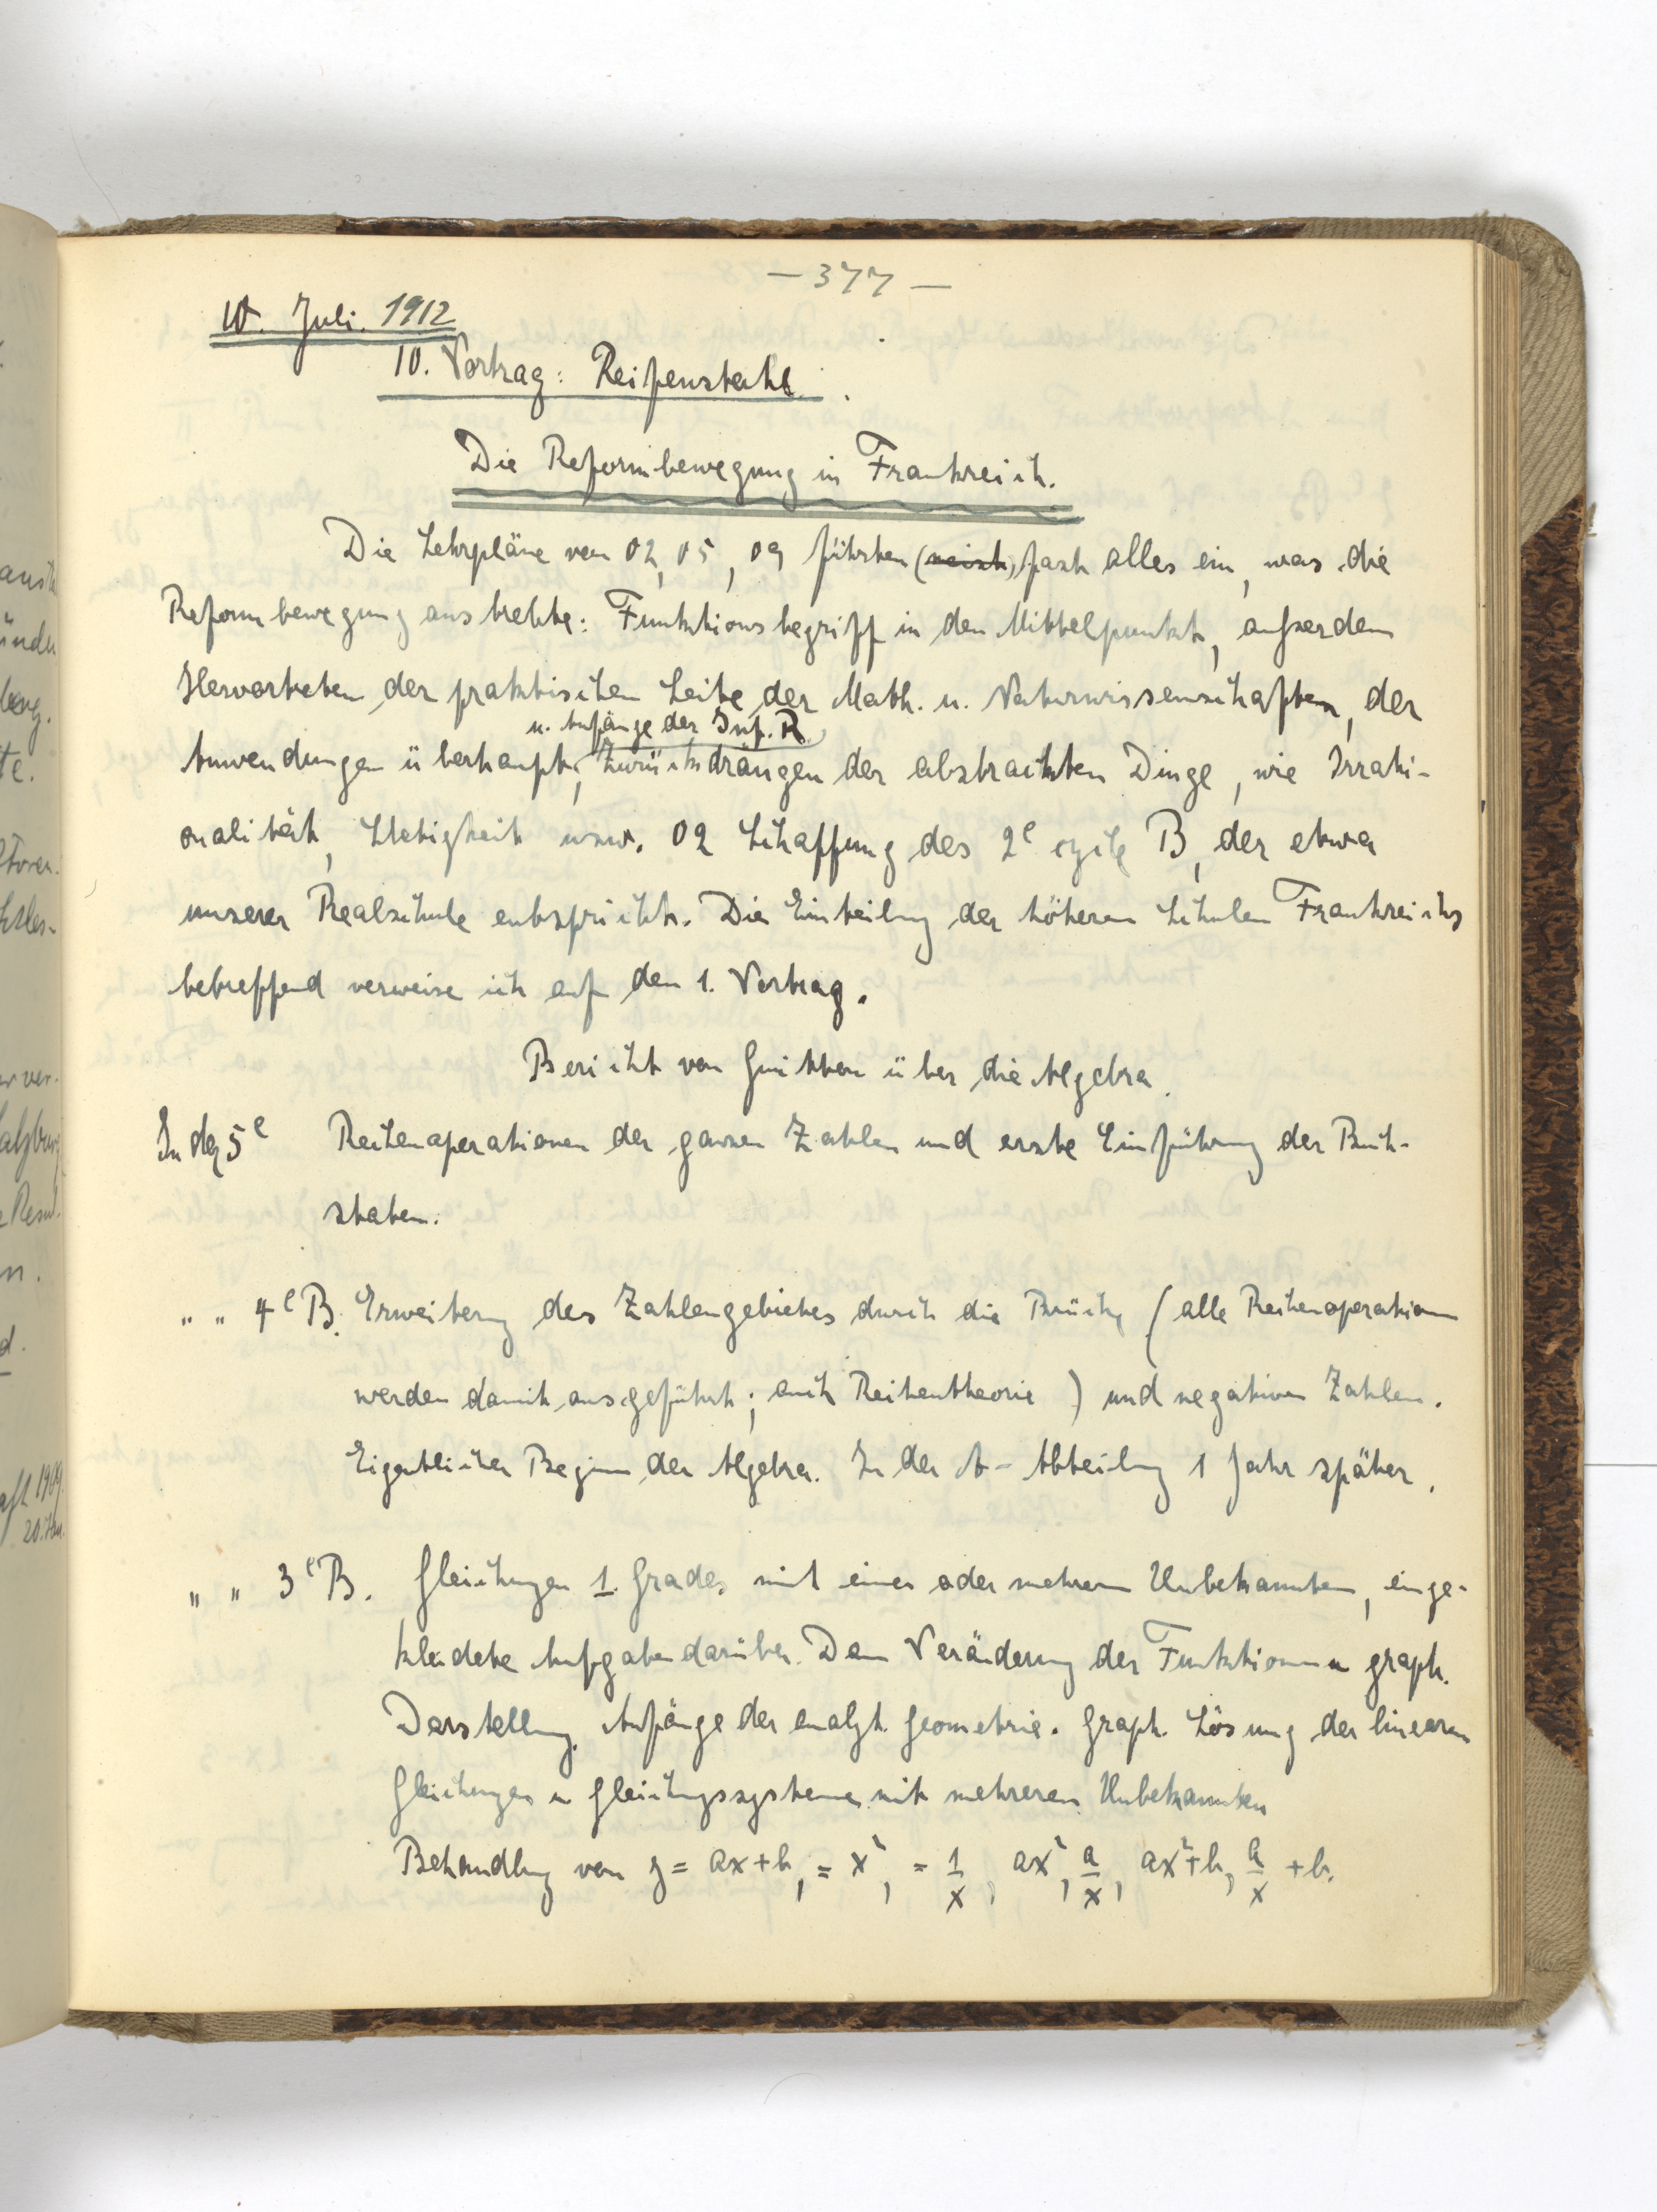 — 377 —
10. Juli. 1912
10. Vortrag: Reifenstahl.
Die Reformbewegung in Frankreich.
Die Lehrpläne von 02, 05, 09 führten (meist) fast alles ein, was die
Reformbewegung anstrebte: Funktionsbegriff in den Mittelpunkt, außerdem
Hervortreten der praktischen Seite der Math. u. Naturwissenschaften, der
u. Anfänge der Inf. R.
Anwendungen überhaupt, Zurückdrängen der abstrakten Dinge, wie Irrati-
onalität, Stetigkeit usw. 02 Schaffung des 2e cycle B, der etwa
unserer Realschule entspricht. Die Einteilung der höheren Schulen Frankreichs
betreffend verweise ich auf den 1. Vortrag.
Bericht von Guitton über die Algebra.
In der 5e Rechenoperationen der ganzen Zahlen und erste Einführung der Buch-
staben.
" " 4e B. Erweiterung des Zahlengebietes durch die Brüche (alle Rechenoperationen
werden damit ausgeführt; auch Reihentheorie) und negativen Zahlen.
Eigentlicher Beginn der Algebra. In der A-Abteilung 1 Jahr später.
" " 3e B. Gleichungen 1. Grades mit einer oder mehreren Unbekannten, einge-
kleidete Aufgaben darüber. Dann Veränderung der Funktionen u graph.
Darstellung. Anfänge der analyt. Geometrie. Graph. Lösung der linearen
Gleichungen u Gleichungssysteme mit mehreren Unbekannten
Behandlung von y = ax+b, = x², = 1/x, ax², a/x, ax²+b, a/x + b.